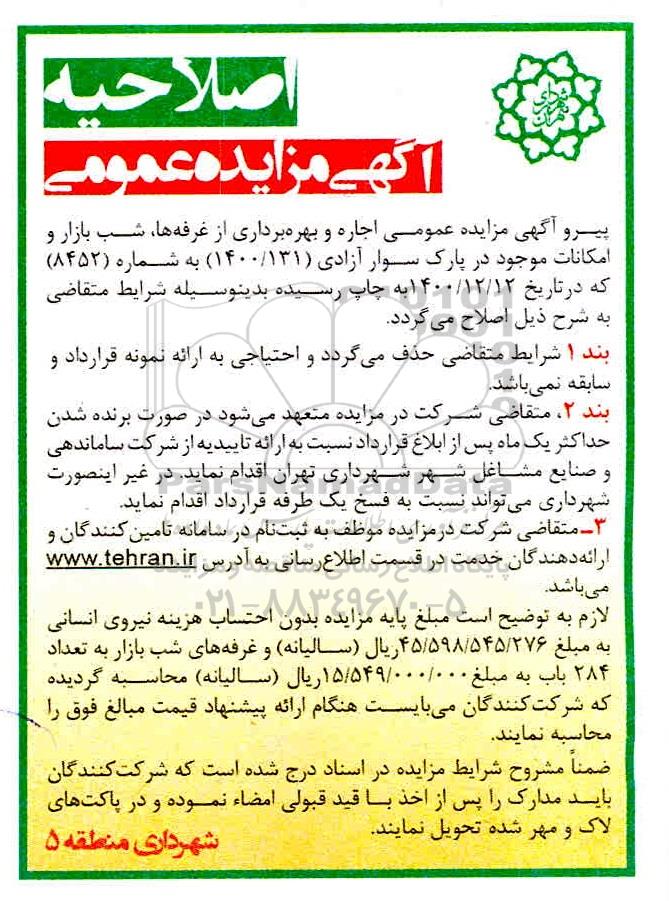 شهرداری تهران
اصلاحیه
آگهی مزایده عمومی
پیرو آگهی مزایده عمومی اجاره و بهره‌برداری از غرفه‌ها، شب بازار و
امکانات موجود در پارک سوار آزادی (۱۴۰۰/۱۳۱) به شماره (۸۴۵۲)
که درتاریخ ۱۴۰۰/۱۲/۱۲به چاپ رسیده بدینوسیله شرایط متقاضی
به شرح ذیل اصلاح می‌گردد.
بند ۱ شرایط متقاضی حذف می‌گردد و احتیاجی به ارائه نمونه قرارداد و
سابقه نمی‌باشد.
بند ۲، متقاضی شرکت در مزایده متعهد می‌شود در صورت برنده شدن
حداکثر یک ماه پس از ابلاغ قرارداد نسبت به ارائه تاییدیه از شرکت ساماندهی
و صنایع مشاغل شهر شهرداری تهران اقدام نماید. در غیر اینصورت
شهرداری می‌تواند نسبت به فسخ یک طرفه قرارداد اقدام نماید.
۳ـ متقاضی شرکت درمزایده موظف به ثبت‌نام در سامانه تامین‌کنندگان و
ارائه‌دهندگان خدمت در قسمت اطلاع‌رسانی به آدرس www.tehran.ir
می‌باشد.
لازم به توضیح است مبلغ پایه مزایده بدون احتساب هزینه نیروی انسانی
به مبلغ ۴۵/۵۹۸/۵۴۵/۲۷۶ریال (سالیانه) و غرفه‌های شب بازار به تعداد
۲۸۴ باب به مبلغ ۱۵/۵۴۹/۰۰۰/۰۰۰ریال (سالیانه) محاسبه گردیده
که شرکت‌کنندگان می‌بایست هنگام ارائه پیشنهاد قیمت مبالغ فوق را
محاسبه نمایند.
ضمناً مشروح شرایط مزایده در اسناد درج شده است که شرکت‌کنندگان
باید مدارک را پس از اخذ با قید قبولی امضاء نموده و در پاکت‌های
لاک و مهر شده تحویل نمایند.
شهرداری منطقه ۵
ParsNamadData
پایگاه اطلاع رسانی مناقصه و مزایده
۰۲۱-۸۸۳۴۹۶۷۰-۵